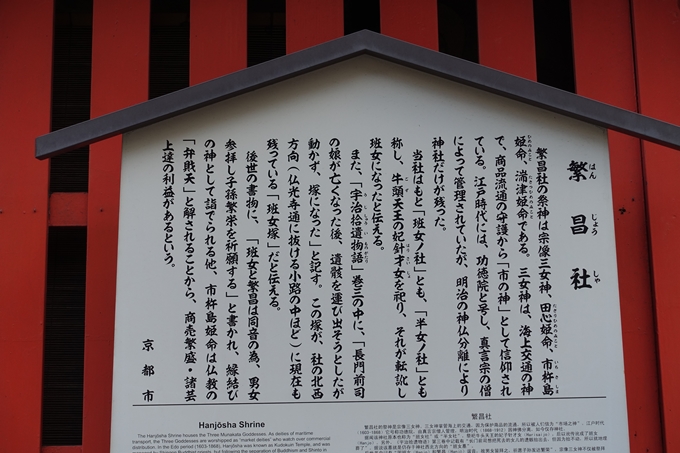 繁昌社
はんじょうしゃ
繁昌社の祭神は宗像三女神、田心姫命、市杵島
姫命、湍津姫命である。三女神は、海上交通の神
で、商品流通の守護から「市の神」として信仰され
ている。江戸時代には、功徳院と号し、真言宗の僧
によって管理されていたが、明治の神仏分離により
神社だけが残った。
当社はもと「班女ノ社」とも、「半女ノ社」とも
称し、牛頭天王の妃針才女を祀り、それが転訛し
班女になったと伝える。
また、「宇治拾遺物語」巻三の中に、「長門前司
の娘が亡くなった後、遺骸を運び出そうとしたが
動かず、塚になった」と記す。この塚が、社の北西
方向(仏光寺通に抜ける小路の中ほど)に現在も
残っている「班女塚」だと伝える。
後世の書物に、「班女と繁昌は同音の為、男女
参拝し子孫繁栄を祈願する」と書かれ、縁結び
の神として詣でられる他、市杵島姫命は仏教の
「弁財天」と解されることから、商売繁盛・諸芸
上達の利益があるという。
京都市
Hanjōsha Shrine
The Hanjōsha Shrine houses the Three Munakata Goddesses. As deities of maritime
transport, the Three Goddesses are worshiped as "market deities" who watch over commercial
distribution. In the Edo period (1603-1868), Hanjōsha was known as Kudokuin Temple, and was
繁昌社